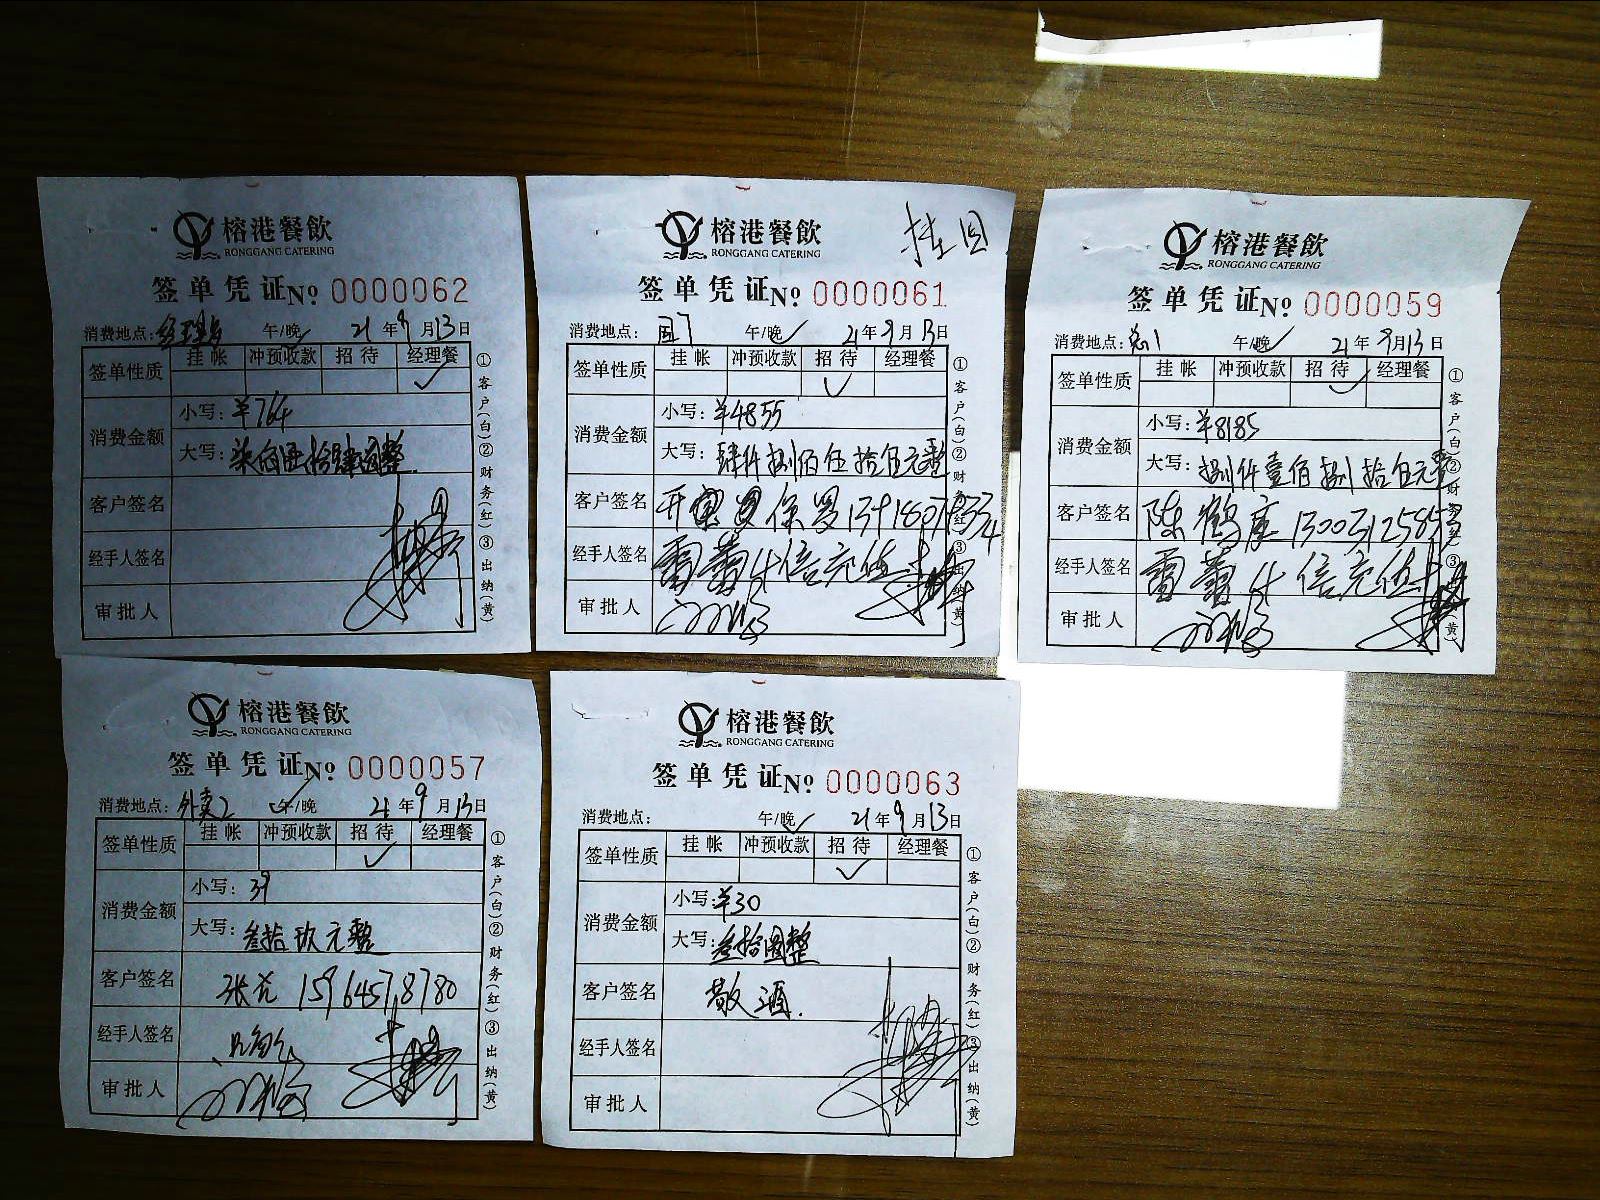 榕港餐飲
RONGGANG CATERING
签单凭证 No 0000062
消费地点: 午/晚 21年9月13日
签单性质 挂帐 冲预收款 招待 经理餐
✓
消费金额 小写: ¥764
大写: 柒佰陆拾肆圆整
客户签名
经手人签名
审批人
①客户(白)②财务(红)③出纳(黄)
榕港餐飲
RONGGANG CATERING
签单凭证 No 0000061
消费地点: 午/晚 21年9月13日
签单性质 挂帐 冲预收款 招待 经理餐
✓
消费金额 小写: ¥4855
大写: 肆仟捌佰伍拾伍元整
客户签名
经手人签名 充值
审批人
①客户(白)②财务(红)③出纳(黄)
榕港餐飲
RONGGANG CATERING
签单凭证 No 0000059
消费地点: 午/晚 21年9月13日
签单性质 挂帐 冲预收款 招待 经理餐
✓
消费金额 小写: ¥8185
大写: 捌仟壹佰捌拾伍元整
客户签名 陈鹤
经手人签名 充值
审批人
①客户(白)②财务(红)③出纳(黄)
榕港餐飲
RONGGANG CATERING
签单凭证 No 0000057
消费地点: 外卖2 午/晚 21年9月13日
签单性质 挂帐 冲预收款 招待 经理餐
✓
消费金额 小写: 39
大写: 叁拾玖元整
客户签名 15964578780
经手人签名
审批人
①客户(白)②财务(红)③出纳(黄)
榕港餐飲
RONGGANG CATERING
签单凭证 No 0000063
消费地点: 午/晚 21年9月13日
签单性质 挂帐 冲预收款 招待 经理餐
✓
消费金额 小写: ¥30
大写: 叁拾圆整
客户签名 敬酒.
经手人签名
审批人
①客户(白)②财务(红)③出纳(黄)